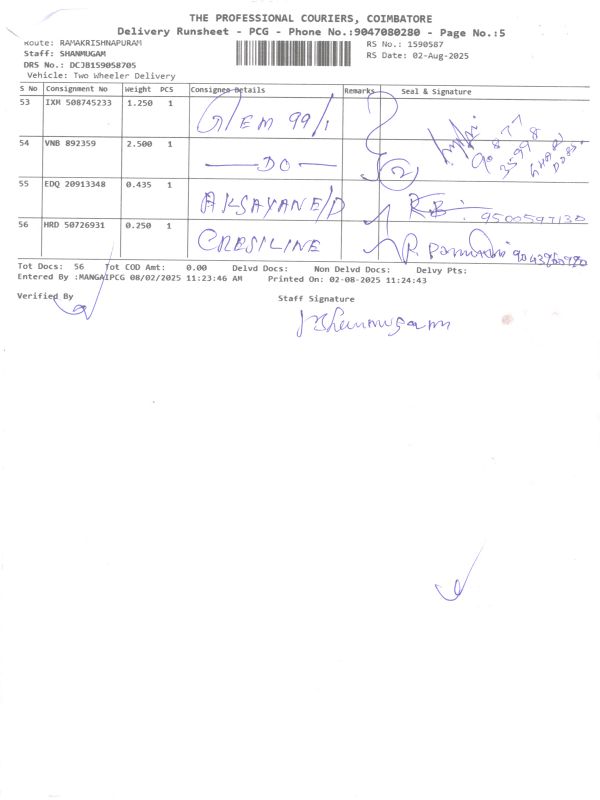 THE PROFESSIONAL COURIERS, COIMBATORE
Delivery Runsheet - PCG - Phone No.:9047080280 - Page No.:5
Route: RAMAKRISHNAPURAM
RS No.: 1590587
Staff: SHANMUGAM
RS Date: 02-Aug-2025
DRS No.: DCJB159058705
Vehicle: Two Wheeler Delivery
S No Consignment No Weight PCS Consignee Details Remarks Seal & Signature
53 IXM 508745233 1.250 1 GEM 99/1
54 VNB 892359 2.500 1 — DO — 2
55 EDQ 20913348 0.435 1 9500597130
56 HRD 50726931 0.250 1 CRESILINE
Tot Docs: 56 Tot COD Amt: 0.00 Delvd Docs: Non Delvd Docs: Delvy Pts:
Entered By :MANGAIPCG 08/02/2025 11:23:46 AM Printed On: 02-08-2025 11:24:43
Verified By
Staff Signature
Shanmugam